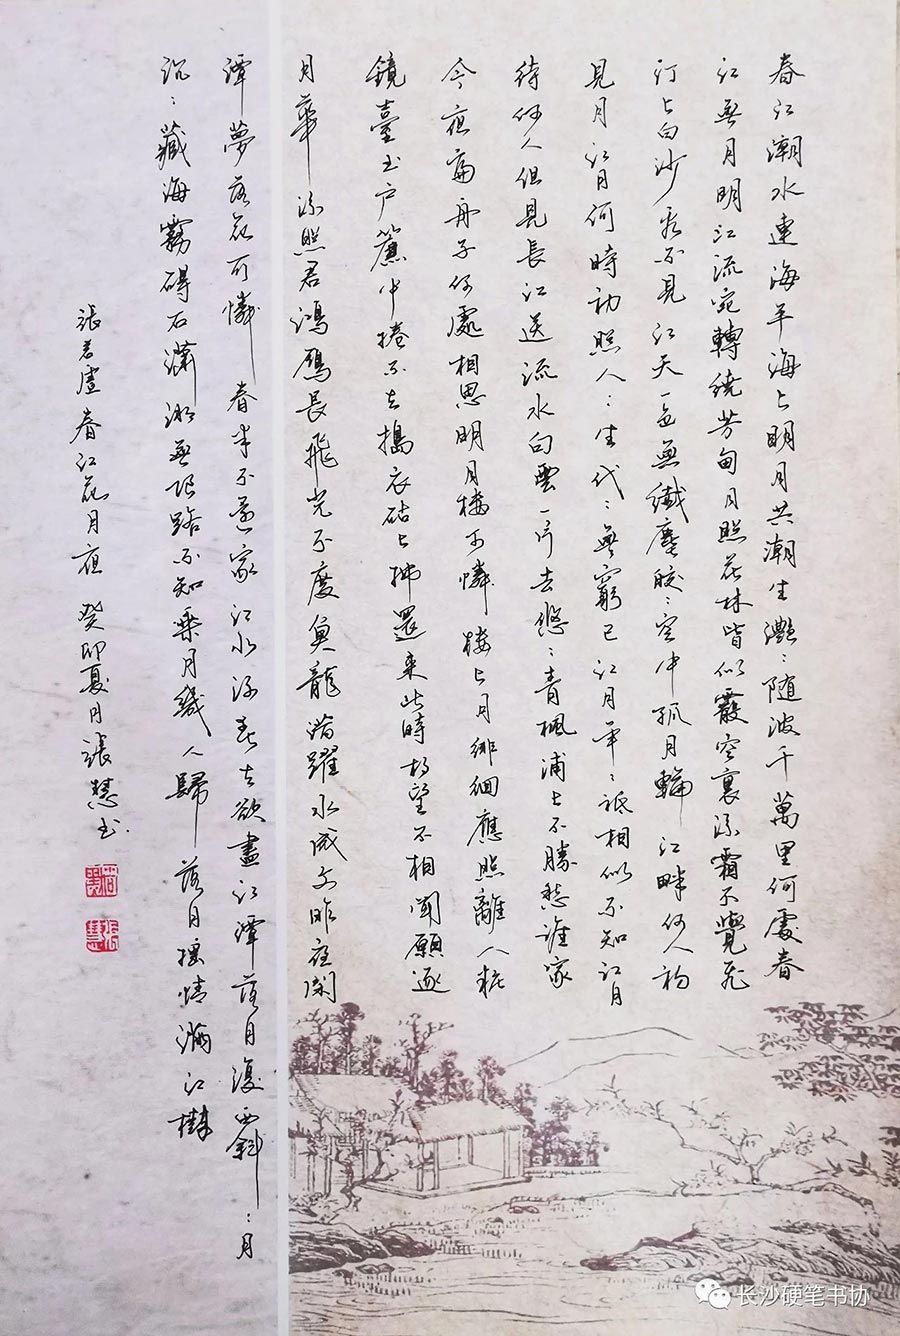 春江潮水連海平海上明月共潮生灩〻随波千萬里何處春
江無月明江流宛轉繞芳甸月照花林皆似霰空裏流霜不覺飛
汀上白沙看不見江天一色無纖塵皎〻空中孤月輪江畔何人初
見月江月何時初照人〻生代〻無窮已江月年〻祗相似不知江月
待何人但見長江送流水白雲一片去悠〻青楓浦上不勝愁誰家
今夜扁舟子何處相思明月樓可憐樓上月徘徊應照離人粧
鏡臺玉户簾中捲不去搗衣砧上拂還来此時相望不相聞願逐
月華流照君鴻雁長飛光不度魚龍潛躍水成文昨夜閑
潭夢落花可憐春半不還家江水流春去欲盡江潭落月復西斜〻月
沉〻藏海霧碣石瀟湘無限路不知乘月幾人歸落月揺情滿江樹
張若虚春江花月夜 癸卯夏月張慧書
長沙硬笔书协